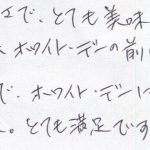 で、とても美味
ホワイト・デーの前に
で、ホワイト・デーに
。とても満足です